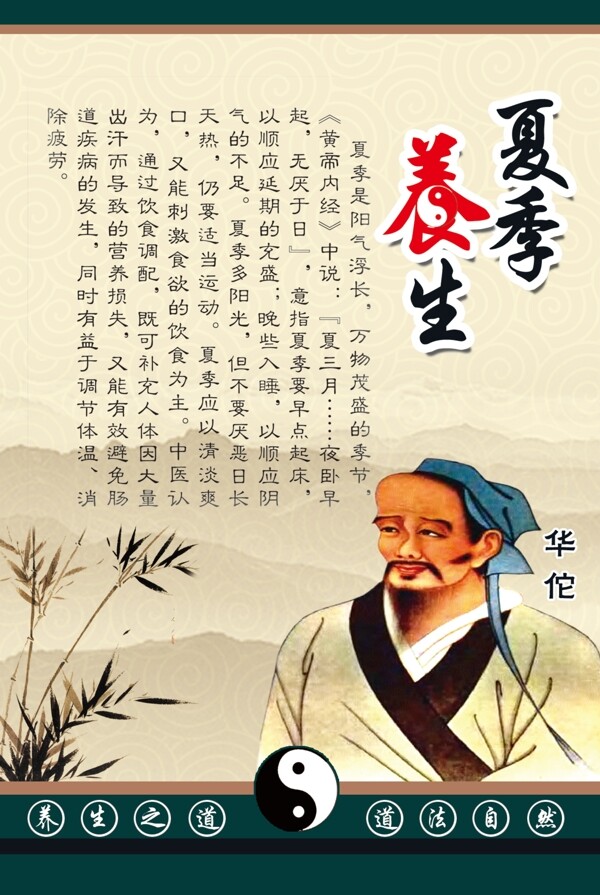 夏季
养生
夏季是阳气浮长，万物茂盛的季节，
《黄帝内经》中说：『夏三月……夜卧早
起，无厌于日』，意指夏季要早点起床，
以顺应延期的充盛；晚些入睡，以顺应阴
气的不足。夏季多阳光，但不要厌恶日长
天热，仍要适当运动。夏季应以清淡爽
口，又能刺激食欲的饮食为主。中医认
为，通过饮食调配，既可补充人体因大量
出汗而导致的营养损失，又能有效避免肠
道疾病的发生，同时有益于调节体温、消
除疲劳。
华佗
养生之道
道法自然